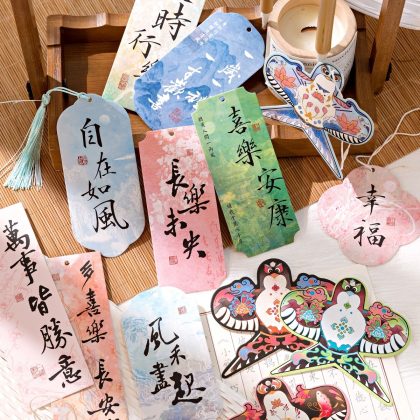 時行樂
自在如風
長樂未央
喜樂安康
幸福
萬事皆勝意
多喜樂 長安
風禾盡起